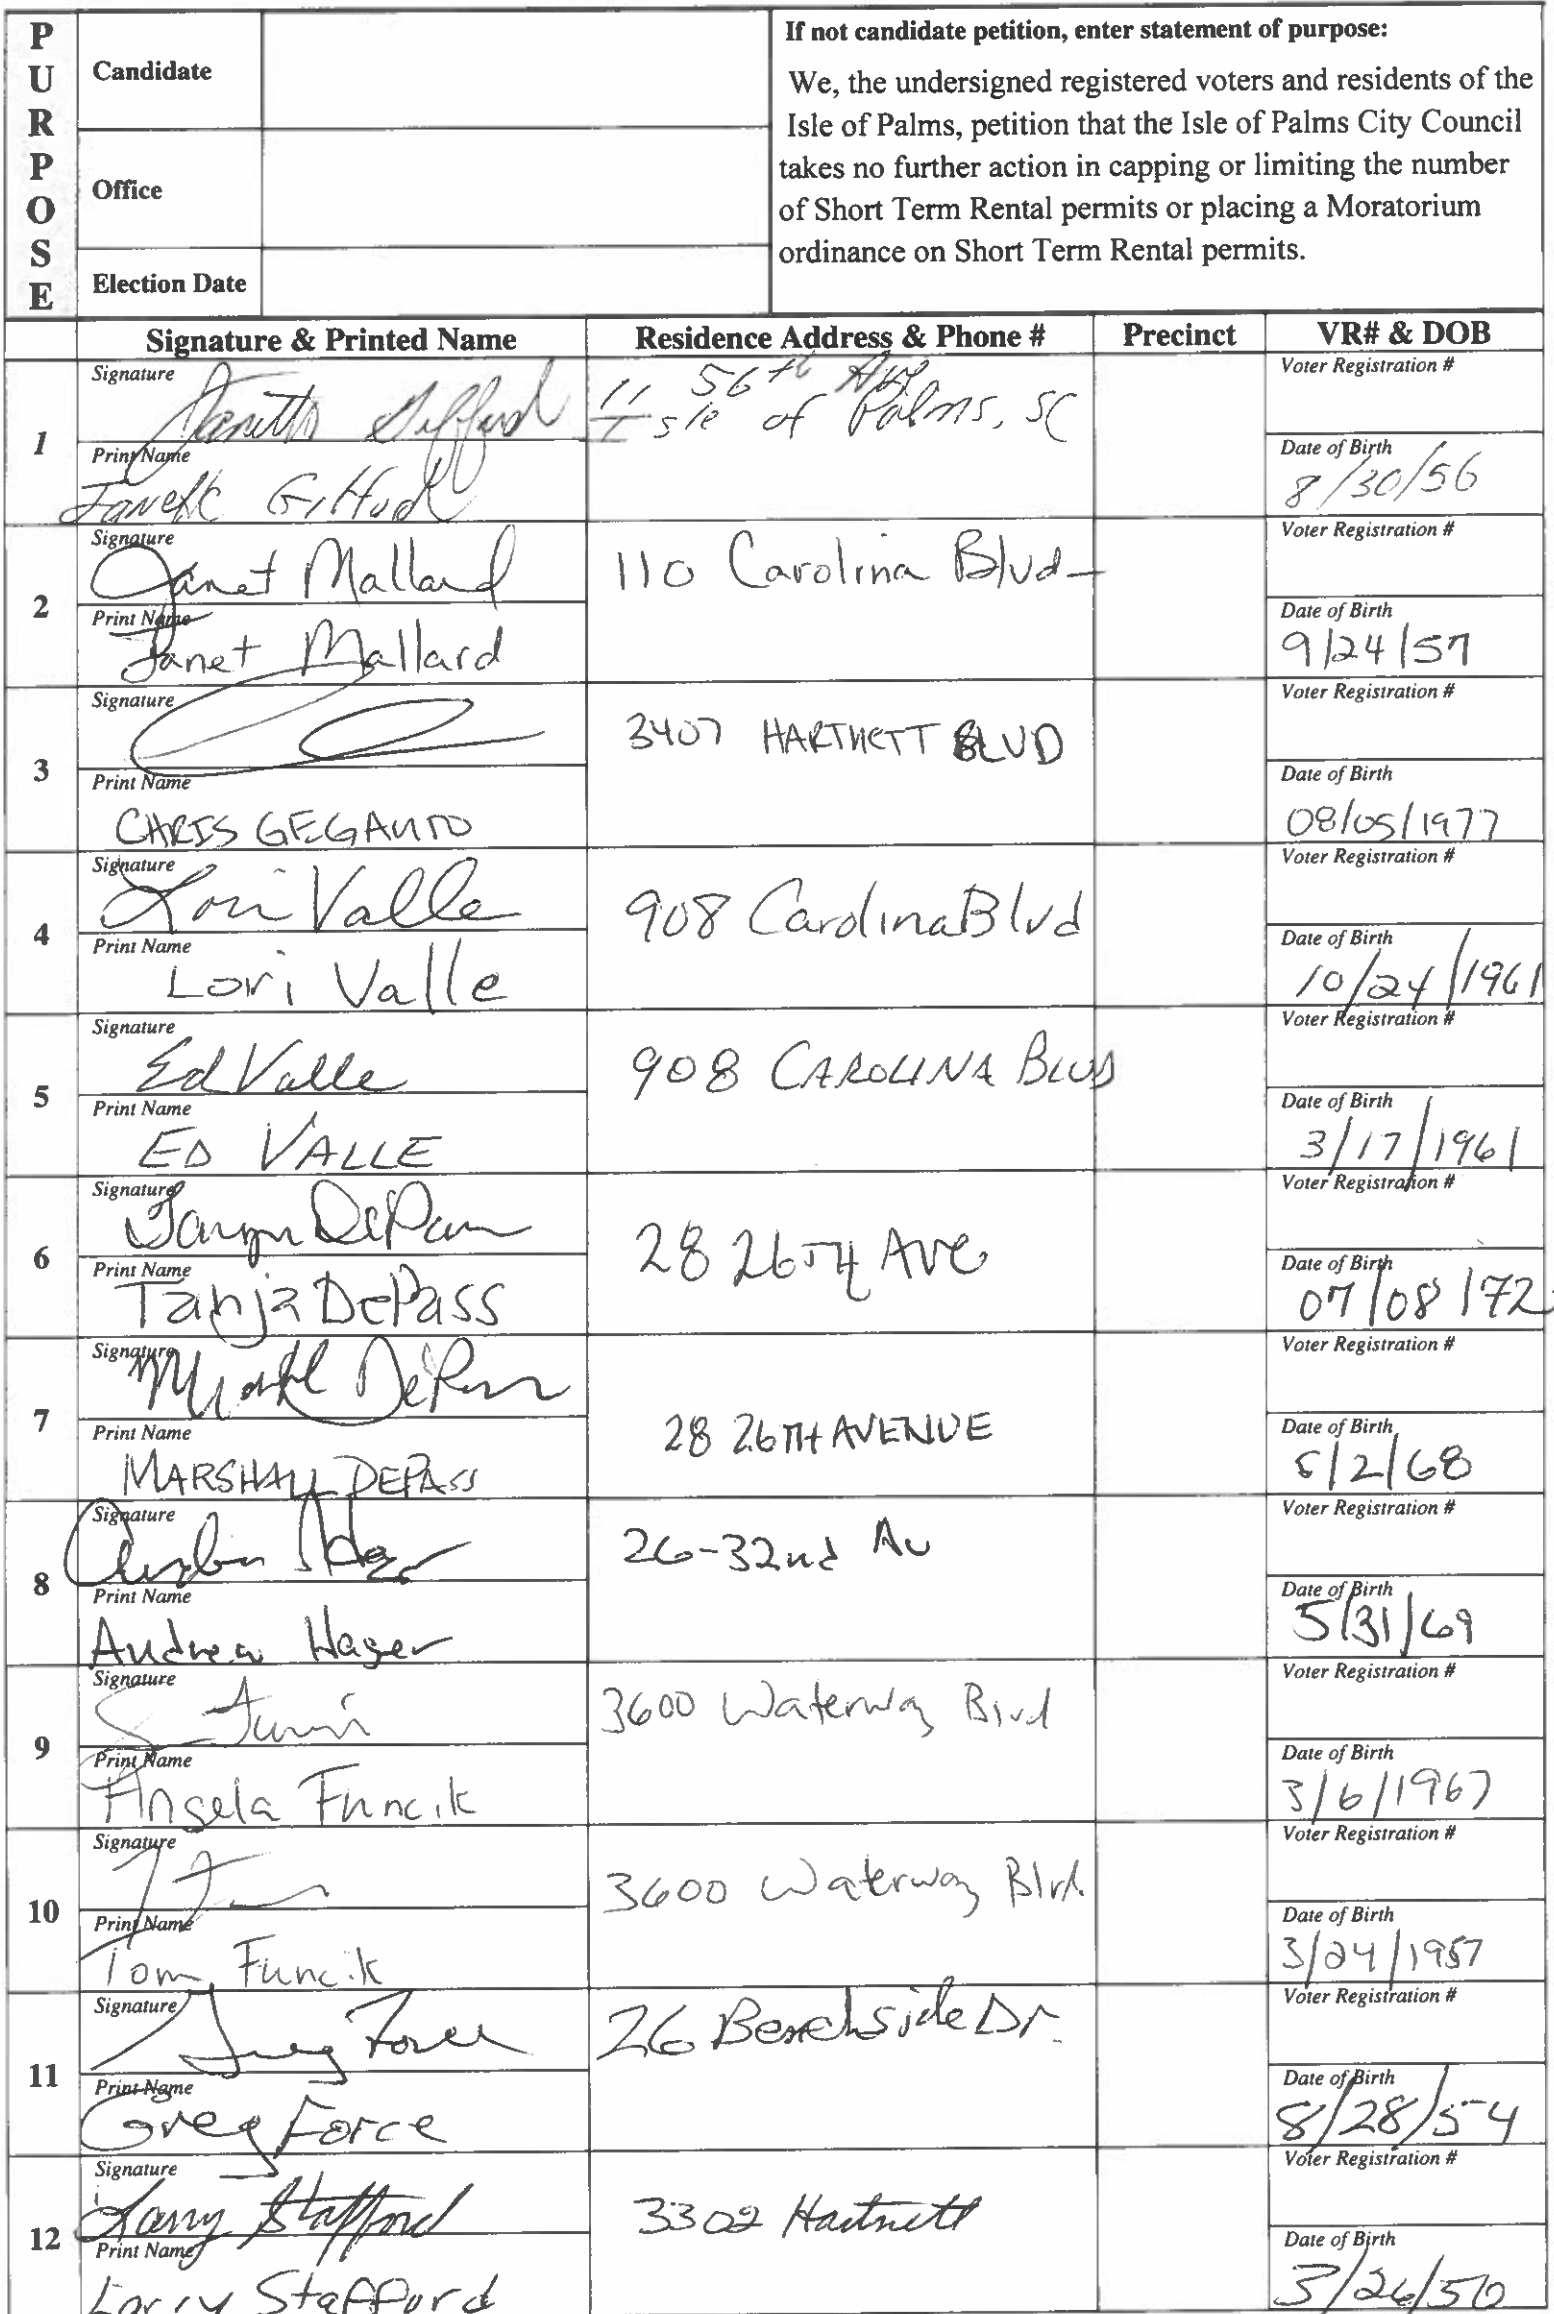 PURPOSE
Candidate
Office
Election Date
If not candidate petition, enter statement of purpose:
We, the undersigned registered voters and residents of the
Isle of Palms, petition that the Isle of Palms City Council
takes no further action in capping or limiting the number
of Short Term Rental permits or placing a Moratorium
ordinance on Short Term Rental permits.
Signature & Printed Name Residence Address & Phone # Precinct VR# & DOB
1
Signature Janette Gifford
Print Name
Janette Gifford
11 56th Ave
Isle of Palms, SC
Voter Registration #
Date of Birth
8/30/56
2
Signature
Janet Mallard
Print Name
Janet Mallard
110 Carolina Blvd
Voter Registration #
Date of Birth
9/24/57
3
Signature
Print Name
CHRIS
3407 HARTNETT BLVD
Voter Registration #
Date of Birth
08/05/1977
4
Signature
Lori Valle
Print Name
Lori Valle
908 Carolina Blvd
Voter Registration #
Date of Birth
10/24/1961
5
Signature
Ed Valle
Print Name
ED VALLE
908 CAROLINA BLVD
Voter Registration #
Date of Birth
3/17/1961
6
Signature
Tanja DePass
Print Name
Tanja DePass
28 26TH AVE
Voter Registration #
Date of Birth
07/08/72
7
Signature
DePass
Print Name
MARSHALL DEPASS
28 26TH AVENUE
Voter Registration #
Date of Birth
/2/68
8
Signature
Print Name
Andrea Hager
26-32nd Av
Voter Registration #
Date of Birth
5/31/69
9
Signature
Print Name
Angela Funcik
3600 Waterway Blvd
Voter Registration #
Date of Birth
3/6/1967
10
Signature
Print Name
Tom Funcik
3600 Waterway Blvd
Voter Registration #
Date of Birth
3/24/1957
11
Signature
Greg Force
Print Name
Greg Force
26 Beachside Dr.
Voter Registration #
Date of Birth
8/28/54
12
Signature
Larry Stafford
Print Name
Larry Stafford
3302 Hartnett
Voter Registration #
Date of Birth
3/26/50